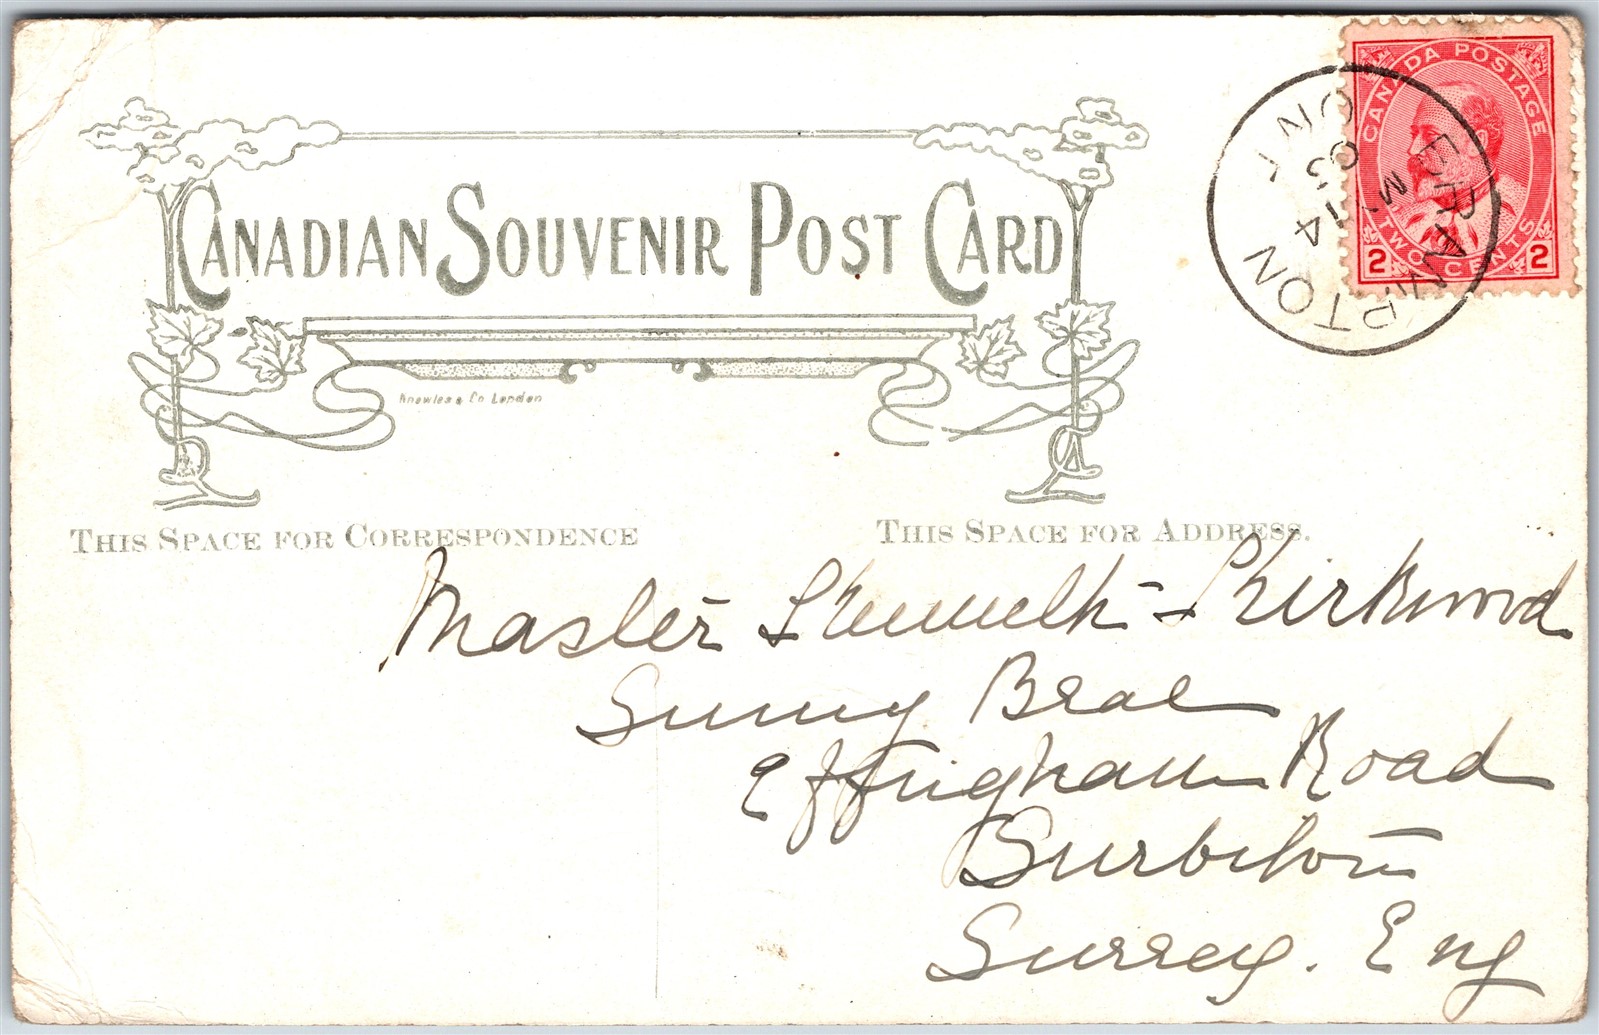 CANADA POSTAGE
TWO CENTS
2 2
BRAMPTON
MY 14
05
ONT
CANADIAN SOUVENIR POST CARD
Knowles & Co London
THIS SPACE FOR CORRESPONDENCE
THIS SPACE FOR ADDRESS.
Master Kenneth Kirkwood
Sunny Brae
Effingham Road
Surbiton
Surrey. Eng